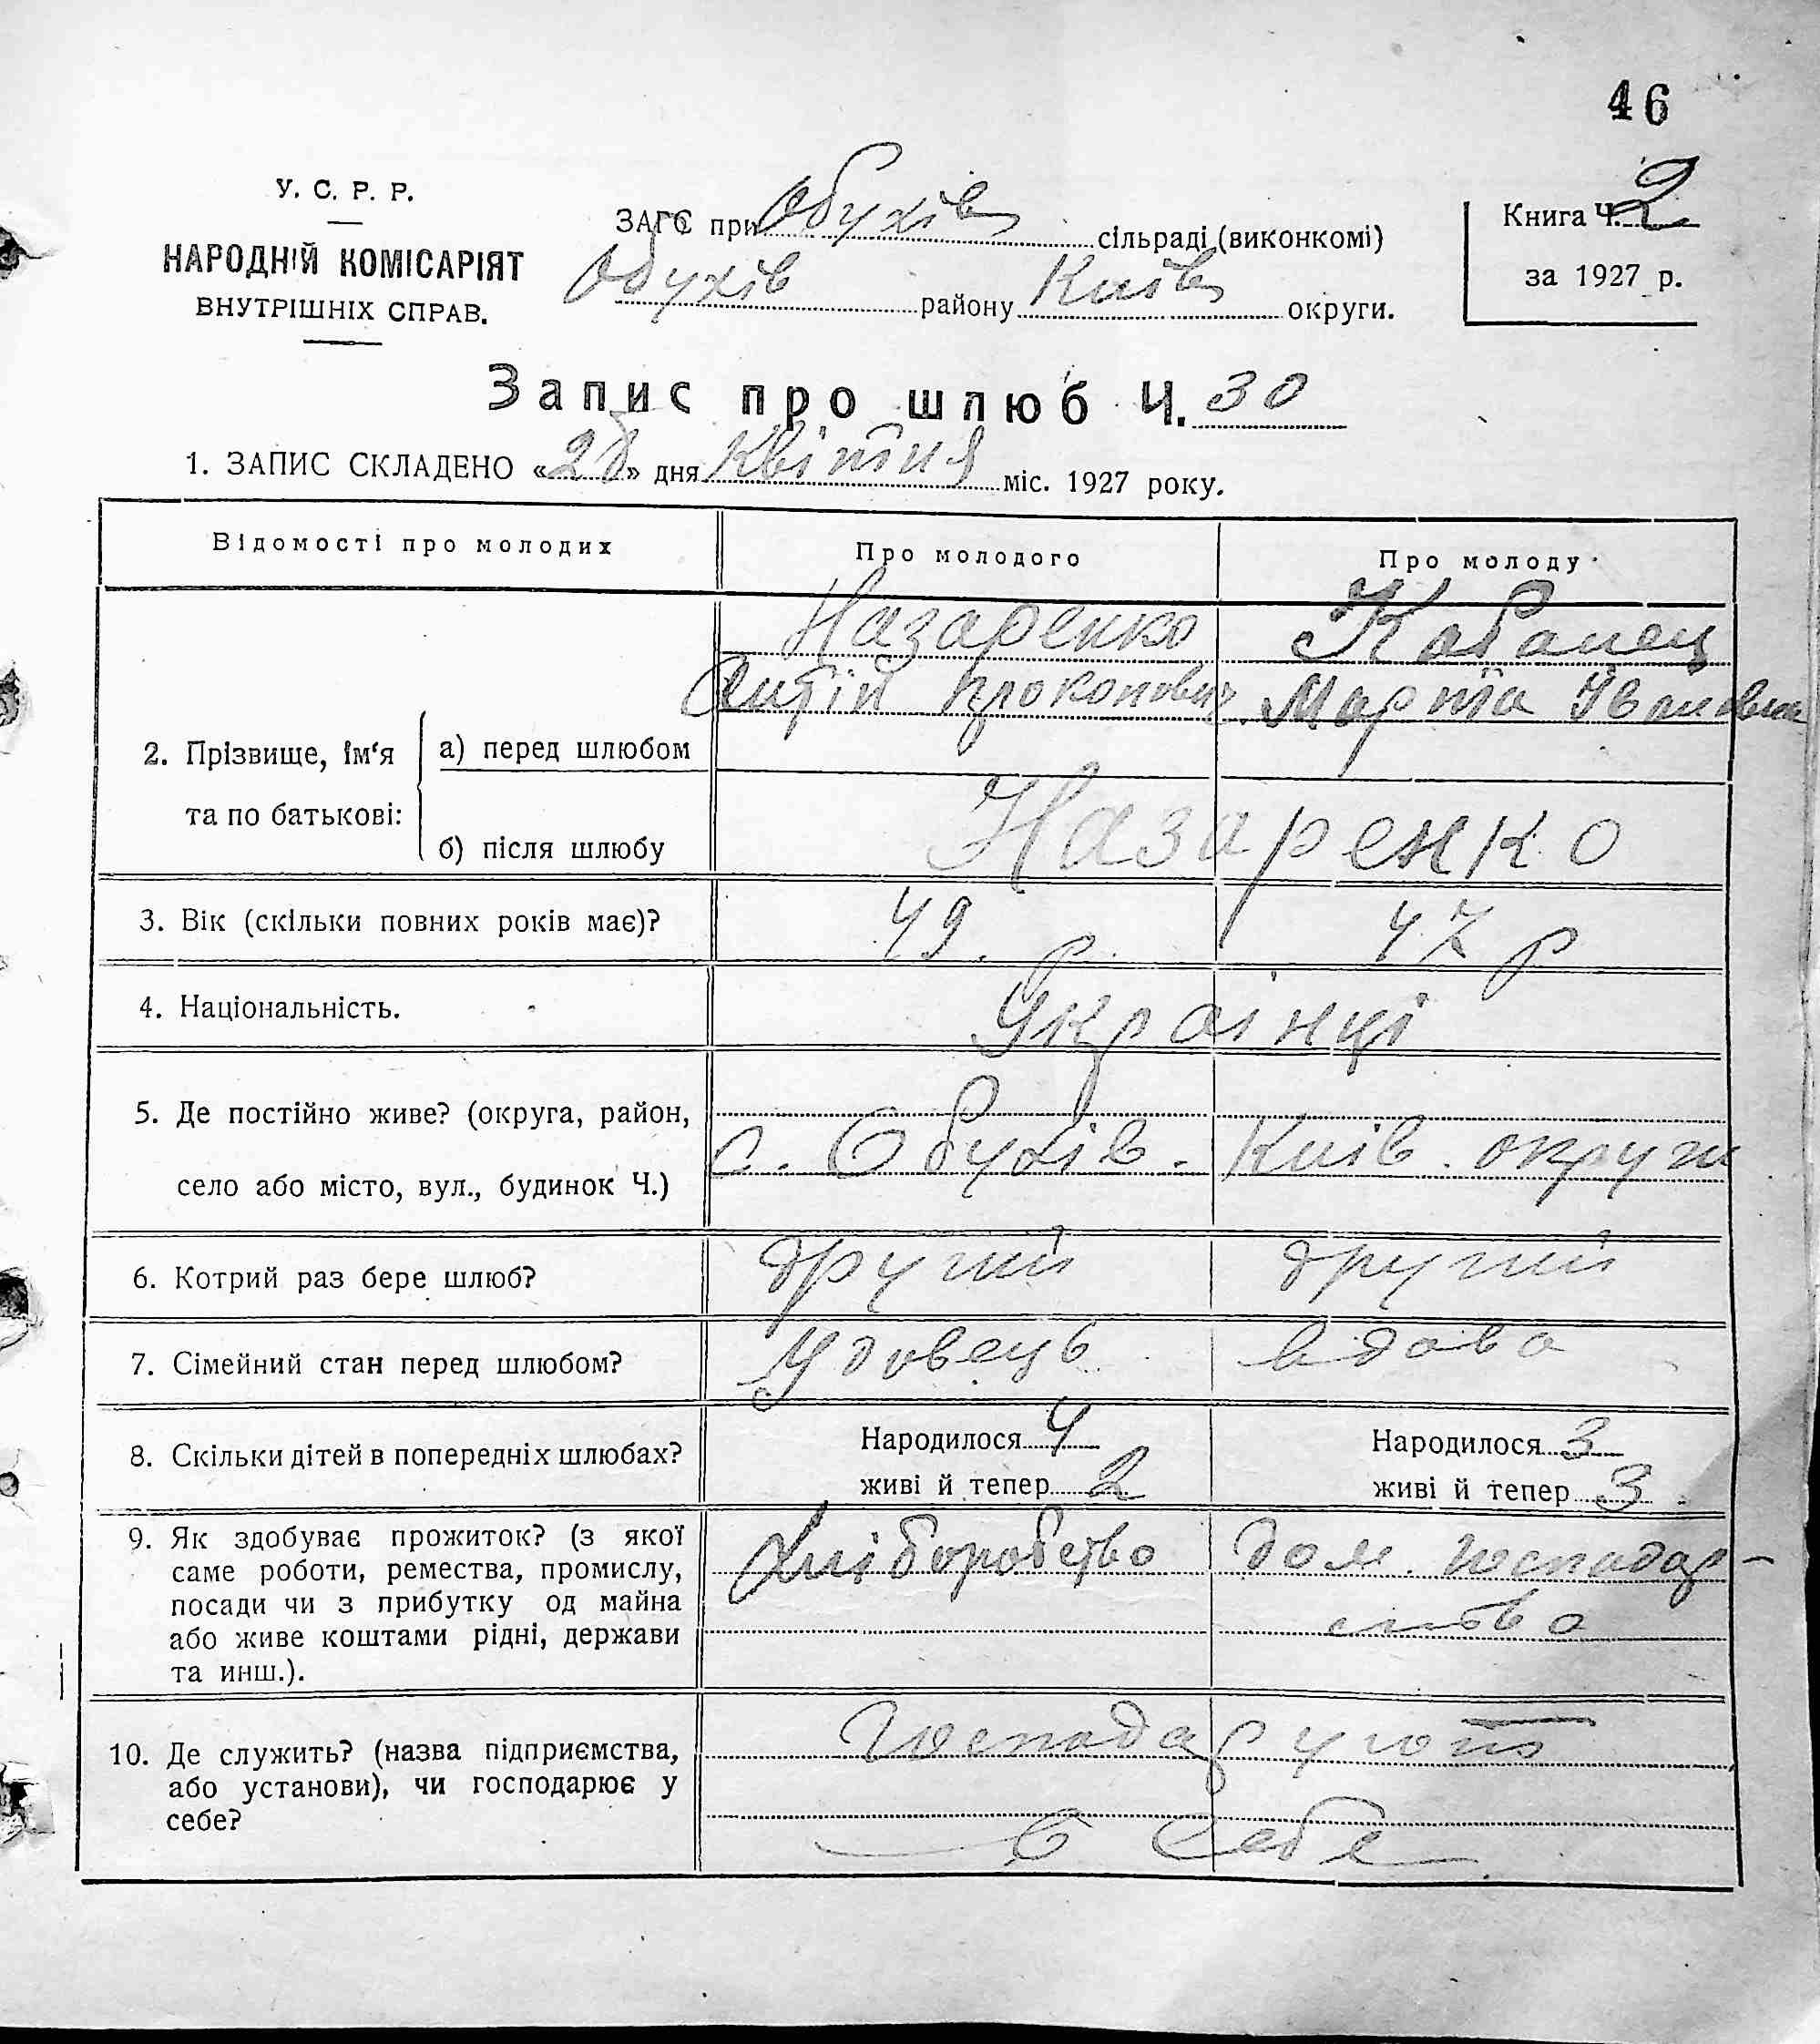 46
У. С. Р. Р.
НАРОДНІЙ КОМІСАРІЯТ
ВНУТРІШНІХ СПРАВ.
ЗАГС при Обухів сільраді (виконкомі)
Обухів району Київ округи.
Книга Ч. 2
за 1927 р.
Запис про шлюб Ч. 30
1. ЗАПИС СКЛАДЕНО « » дня Квітня міс. 1927 року.
Відомості про молодих Про молодого Про молоду
Назаренко Кабанец
Прокопович Марта
2. Прізвище, ім‘я та по батькові: а) перед шлюбом
б) після шлюбу Назаренко
3. Вік (скільки повних років має)? 49. 47 р
4. Національність. Українці
5. Де постійно живе? (округа, район,
село або місто, вул., будинок Ч.) с. Обухів. Київ. округи
6. Котрий раз бере шлюб? другий другий
7. Сімейний стан перед шлюбом? Удовець вдова
8. Скільки дітей в попередніх шлюбах? Народилося 4 Народилося 3
живі й тепер 2 живі й тепер 3
9. Як здобуває прожиток? (з якої
саме роботи, ремества, промислу,
посади чи з прибутку од майна
або живе коштами рідні, держави
та инш.). Хліборобство дом. господар-
ство
10. Де служить? (назва підприємства,
або установи), чи господарює у
себе? Господарують
в себе